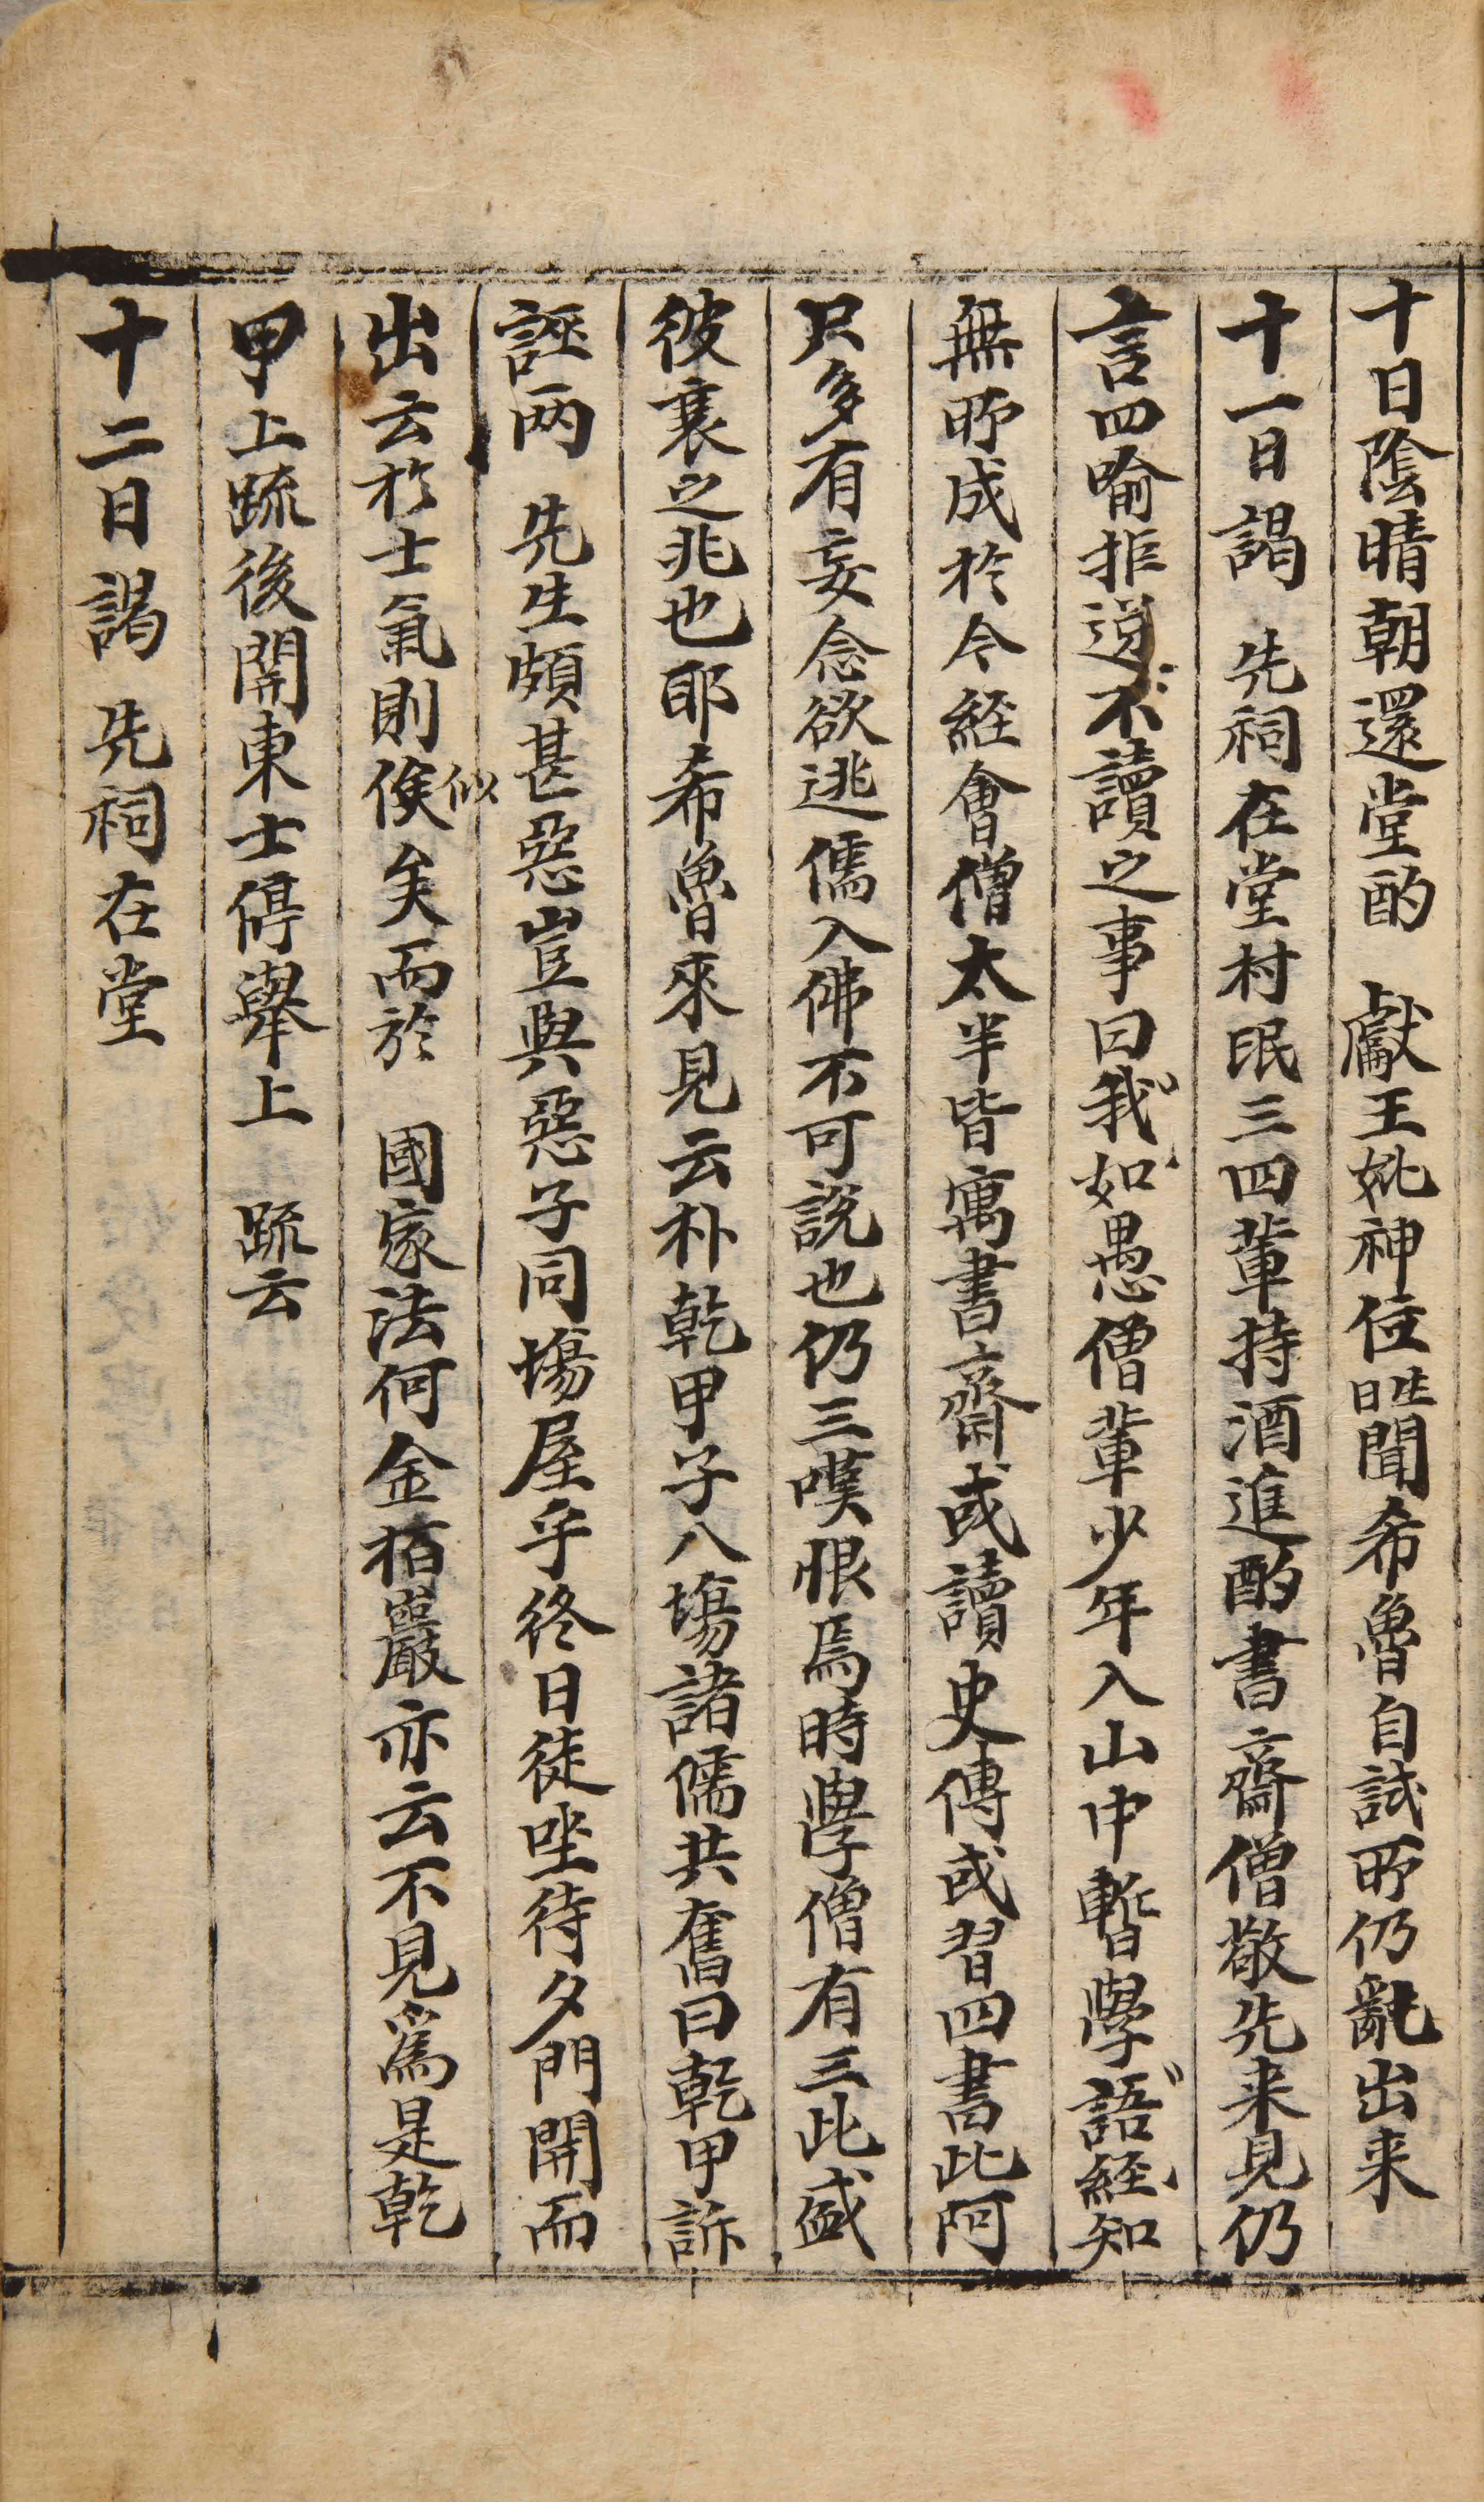 十日陰晴朝還堂酌 獻王妣神位生日聞希魯自試所仍亂出来
十一日謁 先祠在堂村氓三四輩持酒進酌書齋僧敬先来見仍
言四喻拒逆不讀之事曰我如愚僧輩少年入山中暫學語經知
無所成於今経會僧太半皆寓書齋或讀史傳或習四書此阿
只多有妄念欲逃儒入佛不可說也仍三嘆恨焉時學僧有三此盛
彼衰之兆也耶希魯來見云朴乾甲子入場諸儒共奮曰乾甲訴
誣兩 先生頗甚惡豈與惡子同場屋乎終日徒坐待夕門開而
出云於士氣則似俟矣而於 國家法何金栢巖亦云不見為是乾
甲上疏後関東士停擧上 疏云
十二日謁 先祠在堂